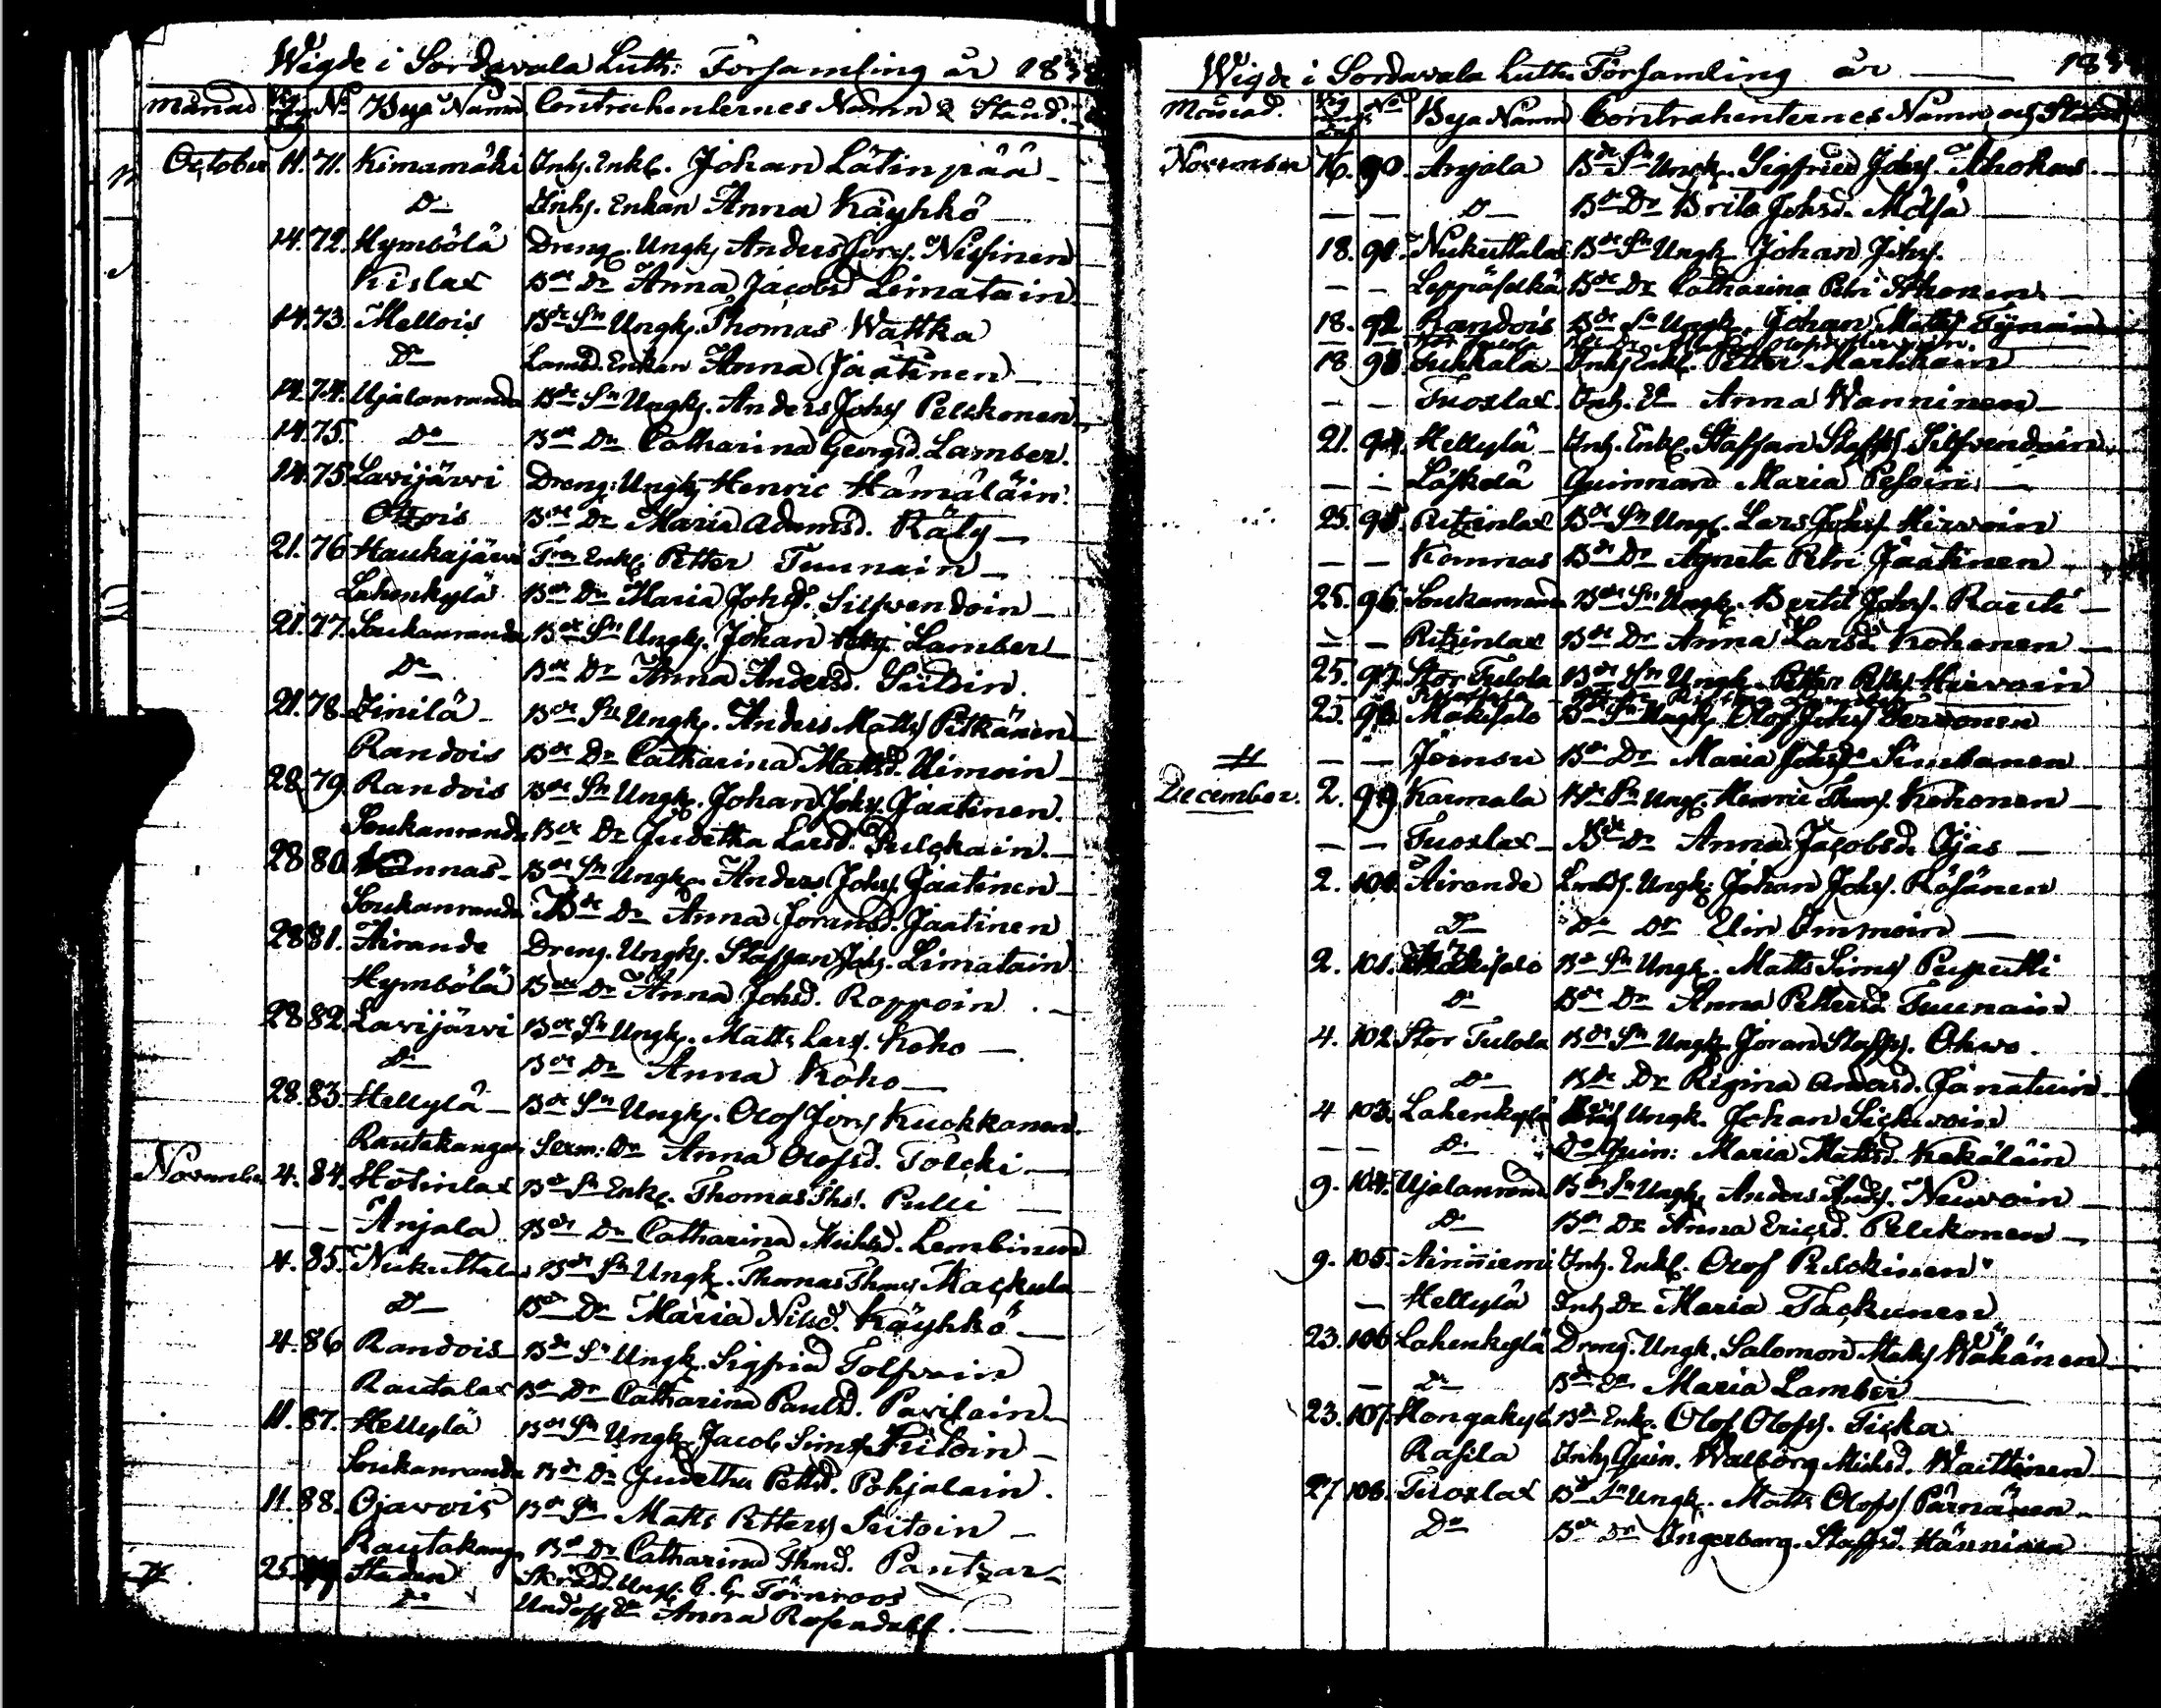 Wigde i Sordavala Luth: Församling år 183
Månad No Bya Namn Contrahenternes Namn & Stånd.
October 11. 71. Kimamäki Inhs. Enkl. Johan Lätinpää
Do Inhs. Enkan Anna Käyhkö
14. 72. Hymbölä Dreng. Ungk. Anders Jörs. Nissinen
Kislax Bde Dr Anna Jacobsd Limatain
14. 73. Mellois Bde Sn Ungk. Thomas Wattka
Do Enkan Anna Jäätinen
14. 74. Ujalanranda Bde Sn Ungk. Anders Johs Pelckonen
14 75. Do Bde Dr Catharina Georgsd. Lamber.
14. 75 Lavijärvi Dreng: Ungk Henric Hämäläin
Otsois Bde Dr Maria Adamsd. Räty
21. 76 Haukajärvi Enkl. Petter Tuunain
Lahenkylä Bde Dr Maria Johsd. Silfvendoin
21. 77. Soukanranda Bde Sn Ungk. Johan Lamber
Do Bde Dr Anna Andersd. Suitoin.
21. 78. Zinilä Bde Sn Ungk. Anders Matts Pitkänen
Randois Bde Dr Catharina Mattsd. Nimoin
28 79. Randois Bde Sn Ungk. Johan Johs. Jaatinen.
Soukanranda Bde Dr Judetha Larsd. Pulckain.
28 80. Kannas Bde Sn Ungk. Anders Johs. Jaatinen
Soukanranda Bde Dr Anna Joransd. Jaatinen
28 81. Airande Dreng. Ungk. Staffan Johs. Limatain
Hymbölä Bde Dr Anna Johsd. Roppoin
28 82. Lavijärvi Bde Sn Ungk. Matts Lars. Koho
Do Bde Dr Anna Koho
28. 83. Hellylä Bde Sn Ungk. Olof Jörs Kuokkanen.
Rautakangas Dr Anna Olofsd. Tolcki
November 4. 84. Hotinlax Bde Sn Enkl. Thomas Ths. Pulli
Anjala Bde Dr Catharina Michsd. Lembinen
4. 85. Nukuttalax Bde Sn Ungk. Thomas Thoms Mackula
Do Bde Dr Maria Nilsd. Käyhkö
4. 86 Randois Bde Sn Ungk. Sigfrid Tolfvain
Rautalax Bde Dr Catharina Paulsd. Pavilain
11. 87. Hellylä Bde Sn Ungk. Jacob Sims Suitoin
Soukanranda Bde Dr Judetha Pettsd. Pohjalain.
11. 88. Ojavois Bde Sn Matts Petters Suitoin
Rautakangas Bde Dr Catharina Thmsd. Pantzar
25. Staden Skrädd. Ungk. C. G. Törnroos
Do Undoff Dr Anna Rosendahl.
Wigde i Sordavala Luth. Församling år 183
Månad. No Bya Namn Contrahenternes Namn och Stånd
November 16. 90. Anjala Bde Sn Ungk. Sigfried Johs. Ahokas
Do Bde Dr Brita Johsd. Mäsä
18. 91. Nukuttalax Bde Sn Ungk Johan Johs.
Leppäselkä Bde Dr Catharina Petri Ahonen
18. 92 Randois Bde Sn Ungk. Johan Matts Tynnin
18 93. Sukkala Inhs Enkl. Petter Markkain
Tuoxlax. Inh. Ea Anna Wanninen
21. 94. Hellylä Inh. Enkl. Staffan Staffs. Silfvendoin
Läskelä Quinnan Maria Pesoin
25. 95. Ritzinlax Bde Sn Ungk. Lars Johs. Hirvoin
Komnas Bde Dr Agneta Petri Jaatinen
25. 96. Soukanranda Bde Sn Ungk. Bertil Johs. Rauti
Ritzinlax Bde Dr Anna Larsd. Kohonen
25. 97. Stor Tulola Bde Sn Ungk. Petter Petts. Hirvoin
25. 98. Makisalo Bde Sn Ungk. Olof Johs Tervonen
Joensu Bde Dr Maria Johsd. Sinckonen
December. 2. 99. Karmala Bde Sn Ungk. Henric Thoms. Kohonen
Tuoxlax Bde Dr Anna Jacobsd. Ojas
2. 100. Airande Ungk: Johan Johs. Räsänen
Do Do Dr Elin Immoin
2. 101. Mäkisalo Bde Sn Ungk. Matts Sims Puputti
Do Bde Dr Anna Pettersd. Tuunain
4. 102. Stor Tulola Bde Sn Ungk. Joran Staffs. Ohvo.
Do Bde Dr Rigina Andersd. Jänatuin
4 103. Lahenkylä Ungk. Johan Sickwoin
Do Do Quin: Maria Mattsd. Kekäläin
9. 104. Ujalanranda Bde Sn Ungk. Anders Ands. Neuvoin
Do Bde Dr Anna Ericsd. Pelckonen
9. 105. Airinniemi Inh. Enkl. Olof Pulckinen
Hellylä Inh Dr Maria Tackunen
23. 106 Lahenkylä Dreng. Ungk. Salomon Matts Wäkänen
Do Bde Dr Maria Lamber
23. 107. Hongakylä Bde Enkl. Olof Olofs. Ticka
Rasila Inh Quin. Walborg Michsd. Waittinen
27 108. Tuoxlax Bde Sn Ungk. Matts Olofs Pärnänen
Do Bde Dr Ingerborg. Staffsd. Hänninen